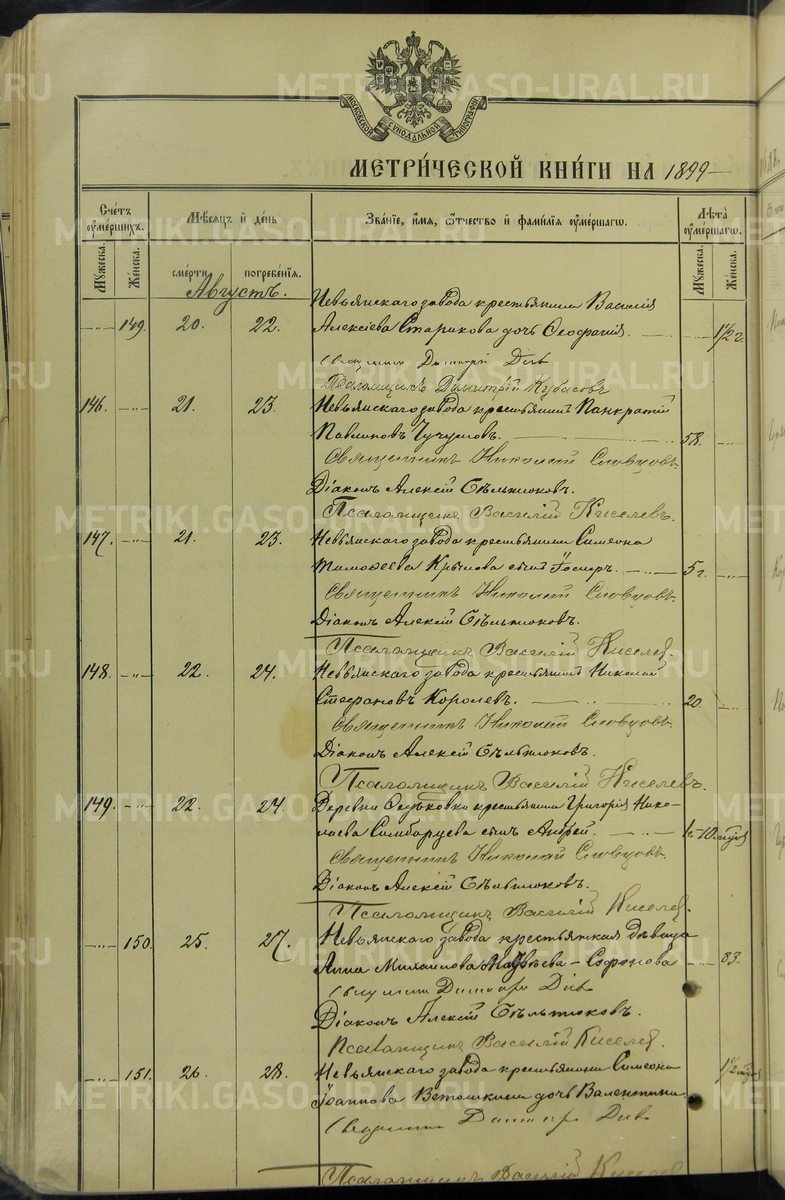 МОСКОВСКОЙ СѴНОДАЛЬНОЙ ТИПОГРАФІИ
МЕТРИ́ЧЕСКОЙ КНИ́ГИ НА 1899
Сче́тъ оу҆ме́ршихъ.
Мѣ́сяцъ и҆ де́нь
Зва́нїе, и҆́мя, ѻ҆́тчество и҆ фами́лїя оу҆ме́ршагѡ.
Лѣ́та оу҆ме́ршагѡ.
Мꙋ́жеска.
Же́нска.
сме́рти
погребе́нїя.
Мꙋ́жеска.
Же́нска.
Августъ.
Невьянскаго завода крестьянина Василія
149. 20. 22. Алексіева Старикова дочь Ѳеофанія. 1/2 г.
Псаломщикъ Димитрій Кубасовъ
146. 21. 23. Невьянскаго завода крестьянинъ Панкратій
58.
Священникъ Николай Словцовъ.
Діаконъ Алексій Бѣльтюковъ.
Псаломщикъ Василій Киселевъ.
147. 21. 23. Невьянскаго завода крестьянина Симеона
Тимоѳеева Крылова сынъ 5 г.
Священникъ Николай Словцовъ.
Діаконъ Алексій Бѣльтюковъ.
Псаломщикъ Василій Киселев.
148. 22. 24. Невьянскаго завода крестьянинъ Николай
Стефановъ Королевъ. 20
Священникъ Николай Словцовъ.
Діаконъ Алексій Бѣльтюковъ.
Псаломщикъ Василій Киселевъ.
149. 22. 24. Деревни Ѳедьковки крестьянина Григорія Нико-
лаева сынъ Андрей.
Священникъ Николай Словцовъ.
Діаконъ Алексій Бѣльтюковъ.
Псаломщикъ Василій Киселев.
150. 25. 27. Невьянскаго завода крестьянская дѣвица
Анна Михаилова Софонова 83.
Діаконъ Алексій Бѣльтюковъ.
Псаломщикъ Василій Киселев.
151. 26. 28. Невьянскаго завода крестьянина Симеона
Іоаннова дочь Валентина.
Псаломщикъ Василій
METRIKI.GASO-URAL.RU